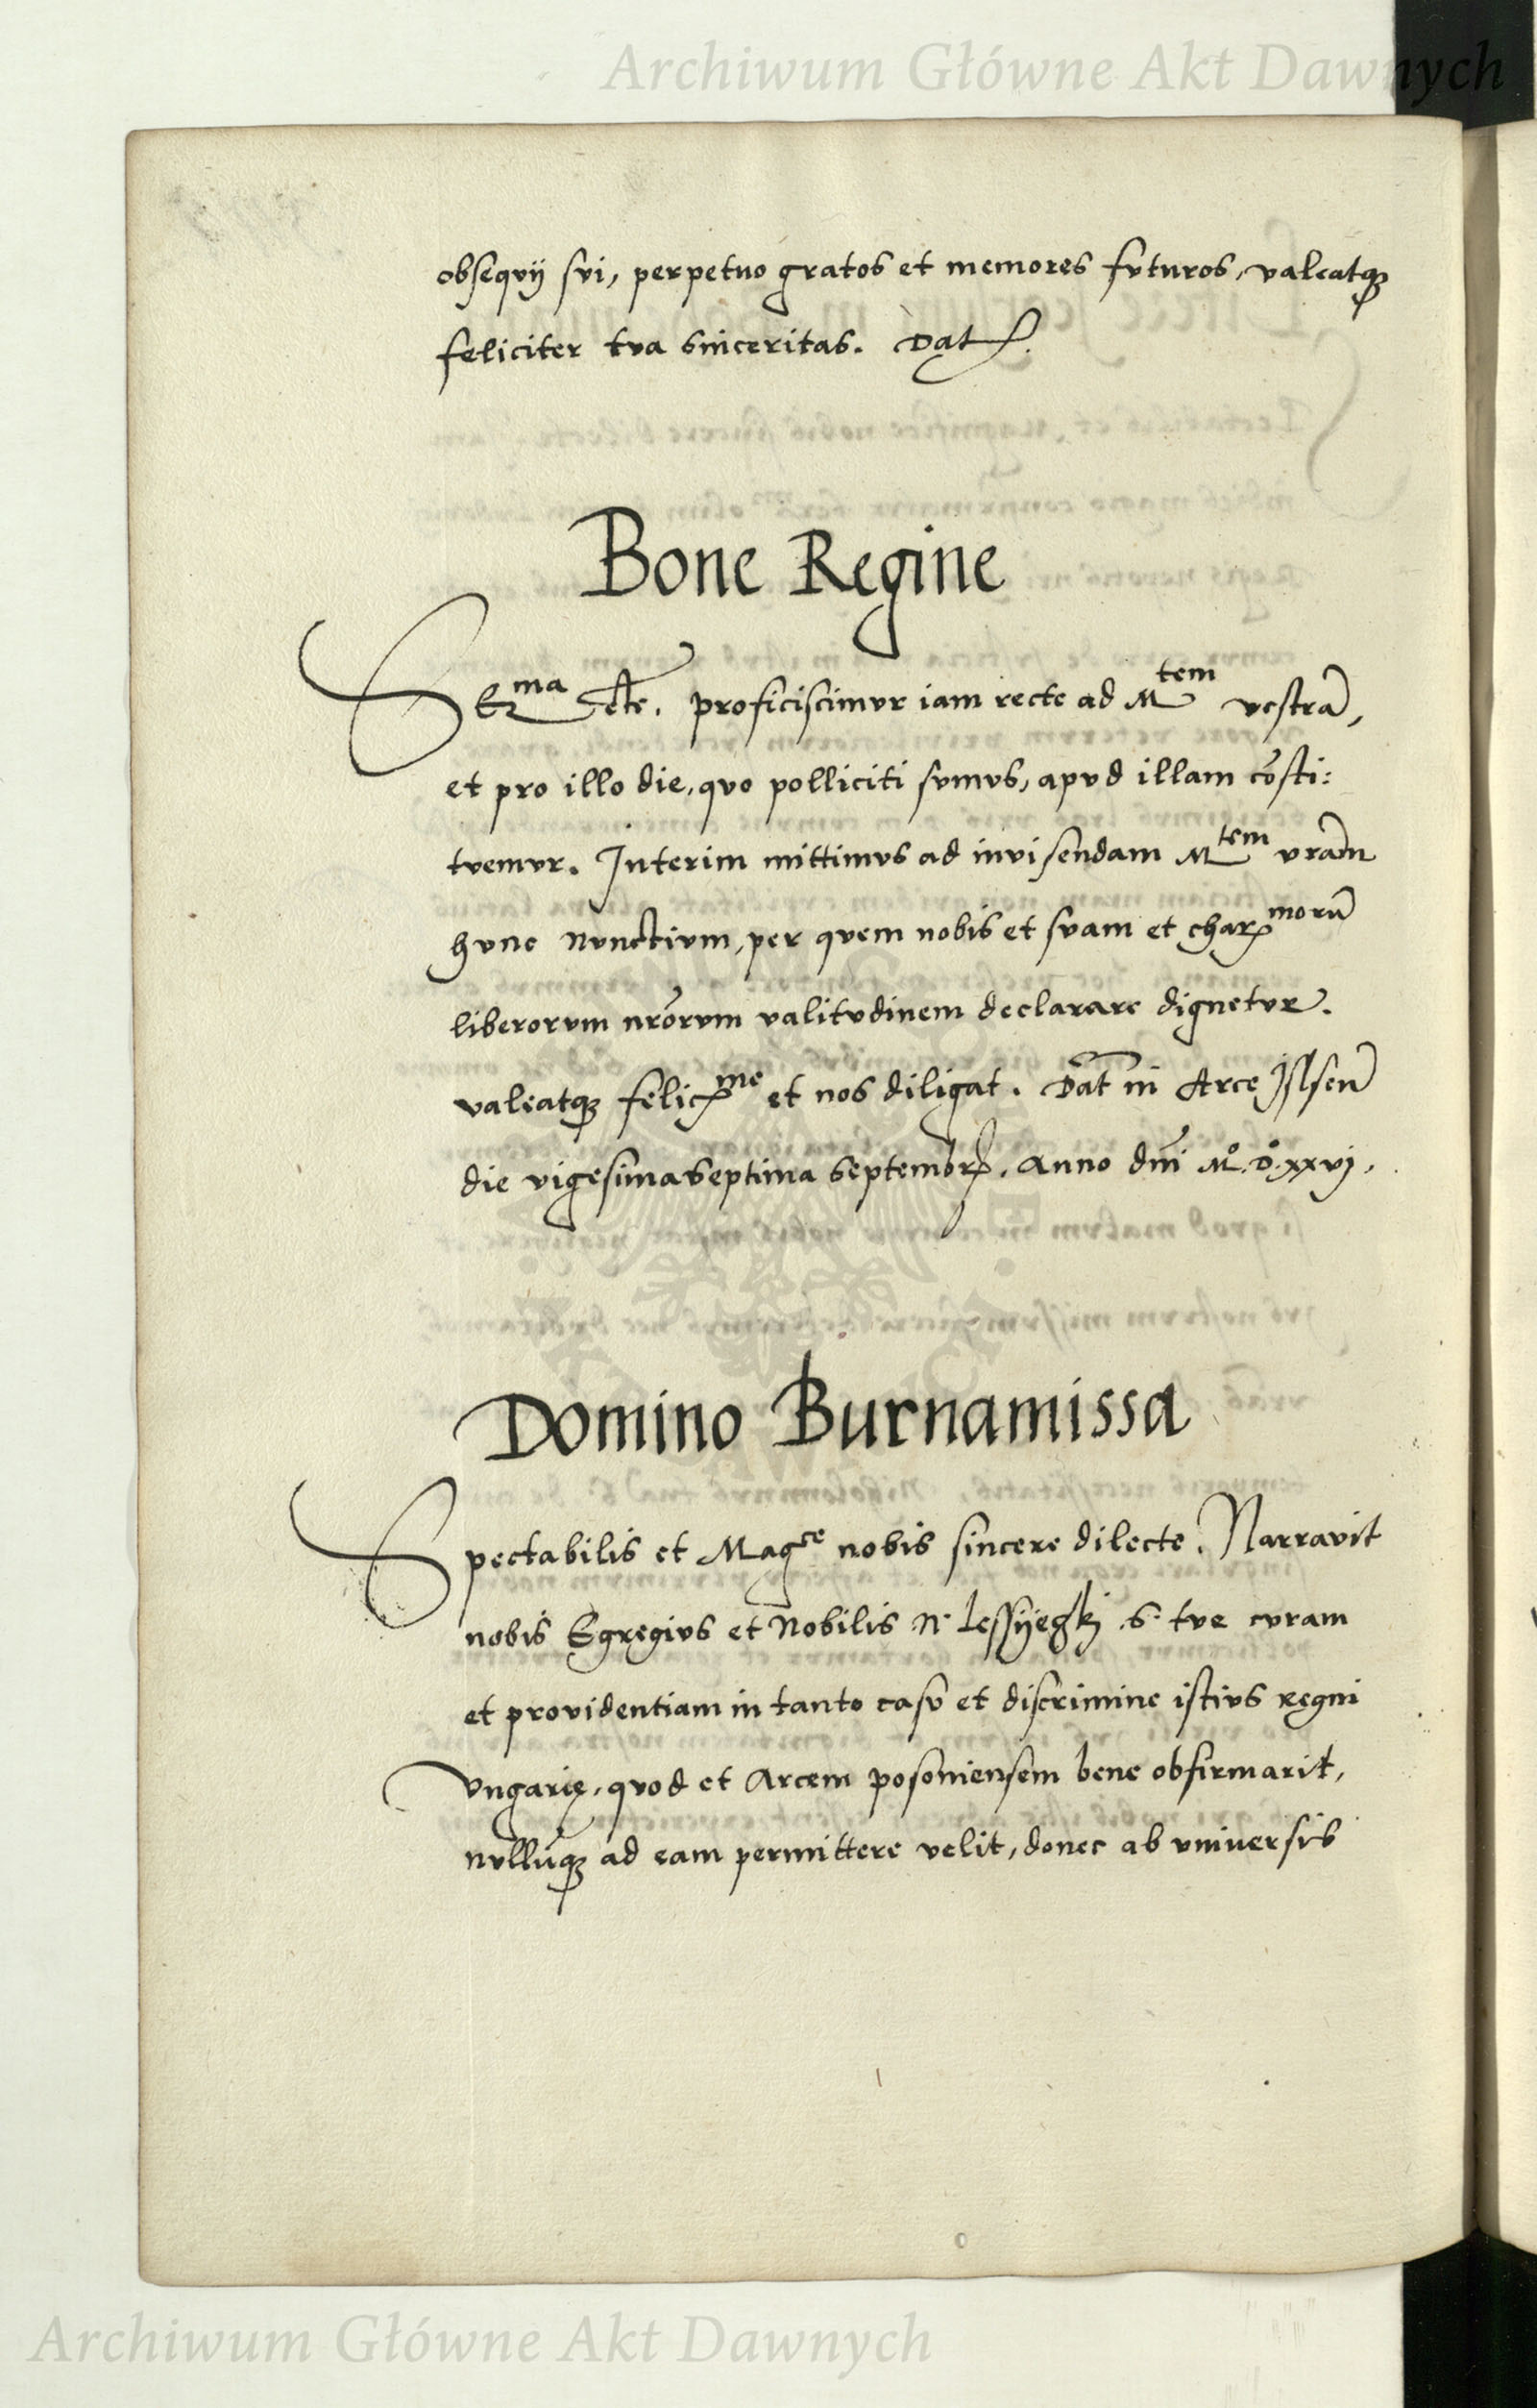 Archiwum Główne Akt Dawnych
obseqvij svi, perpetuo gratos et memores fvturos, valeatqꝫ
feliciter tva sinceritas. Dat
Bone Regine
Serma etc. proficiscimvr iam recte ad Mtem vestrā,
et pro illo die, qvo polliciti svmvs, apvd illam cōsti:
tvemvr. Interim mittimvs ad invisendam Mtem vrām
hvnc nvnctivm, per qvem nobis et svam et charmorū
liberorvm nrōrvm valitvdinem declarare dignetvr.
valeatqꝫ felicme et nos diligat. Dat in Arce
die vigesima septima septembr. Anno dnī Mº.Dº.xxvj.
Domino Burnamissa
Spectabilis et Magce nobis sincere dilecte. Narravit
nobis Egregivs et Nobilis N. S. tve cvram
et providentiam in tanto casv et discrimine istivs regni
vngarię, qvod et Arcem posoniensem bene obfirmarit,
nvllūqꝫ ad eam permittere velit, donec ab vniversis
Archiwum Główne Akt Dawnych